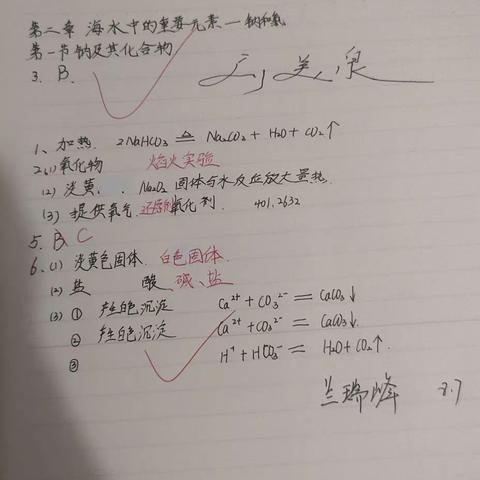 第二章 海水中的重要元素—钠和氯
第一节 钠及其化合物
3. B.
1、加热. 2NaHCO₃ ≜ Na₂CO₃ + H₂O + CO₂↑
2.(1)氧化物 焰火实验
(2) 淡黄、 Na₂O₂ 固体与水反应放大量热.
(3) 提供氧气. 还原剂 氧化剂. 401.2632
5. B C
6. (1) 淡黄色固体. 白色固体.
(2) 盐 酸 碱、盐
(3) ① 产生白色沉淀 Ca²⁺ + CO₃²⁻ = CaCO₃↓
② 产生白色沉淀 Ca²⁺ + CO₃²⁻ = CaCO₃↓.
③ H⁺ + HCO₃⁻ = H₂O + CO₂↑.
兰瑞峰 8.7